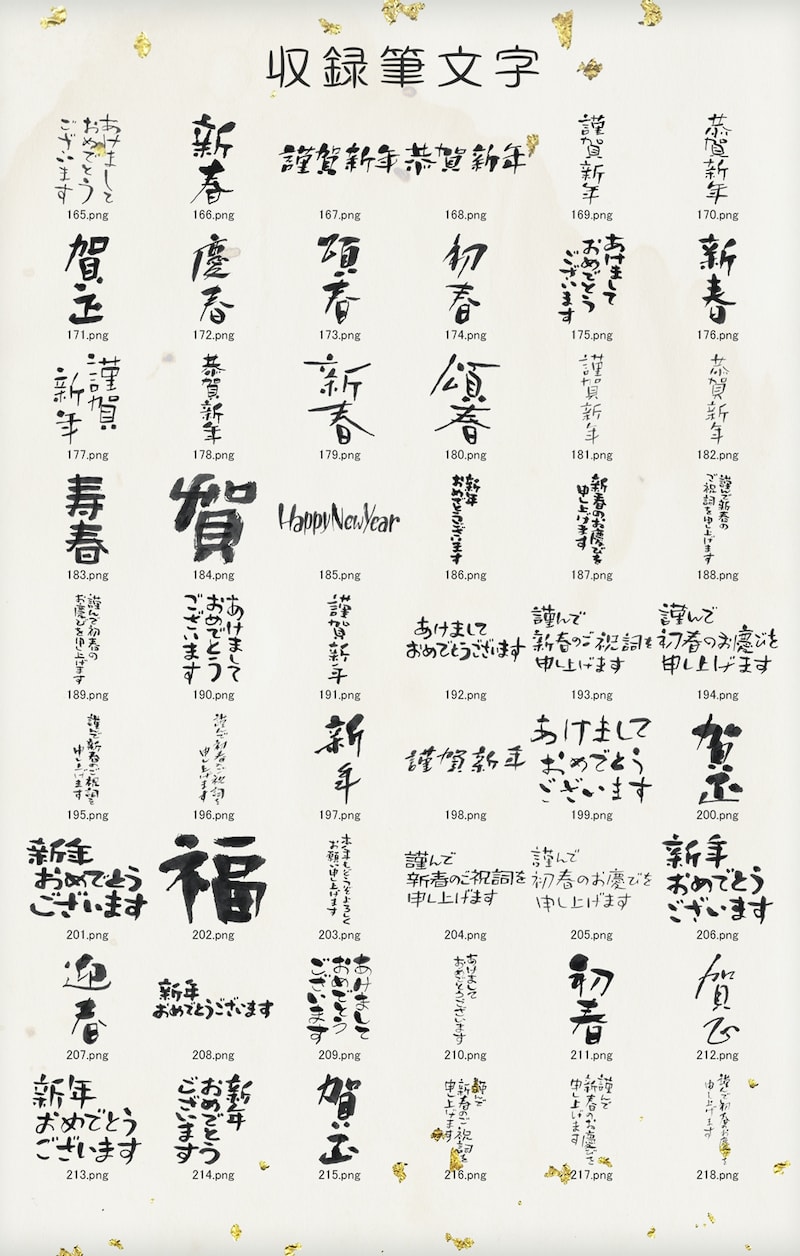 収録筆文字
あけまして
おめでとう
ございます
165.png
新春
166.png
謹賀新年
167.png
恭賀新年
168.png
謹賀新年
169.png
恭賀新年
170.png
賀正
171.png
慶春
172.png
頌春
173.png
初春
174.png
あけまして
おめでとう
ございます
175.png
新春
176.png
謹賀
新年
177.png
恭賀新年
178.png
新春
179.png
頌春
180.png
謹賀新年
181.png
恭賀新年
182.png
寿春
183.png
賀
184.png
Happy New Year
185.png
新年
おめでとうございます
186.png
新春のお慶びを
申し上げます
187.png
謹んで新春の
ご祝詞を申し上げます
188.png
謹んで初春の
お慶びを申し上げます
189.png
あけまして
おめでとう
ございます
190.png
謹賀新年
191.png
あけまして
おめでとうございます
192.png
謹んで
新春のご祝詞を
申し上げます
193.png
謹んで
初春のお慶びを
申し上げます
194.png
謹んで新春のご祝詞を
申し上げます
195.png
謹んで初春ご祝詞を
申し上げます
196.png
新年
197.png
謹賀新年
198.png
あけまして
おめでとう
ございます
199.png
賀正
200.png
新年
おめでとう
ございます
201.png
福
202.png
本年もどうぞよろしく
お願い申し上げます
203.png
謹んで
新春のご祝詞を
申し上げます
204.png
謹んで
初春のお慶びを
申し上げます
205.png
新年
おめでとう
ございます
206.png
迎春
207.png
新年
おめでとうございます
208.png
あけまして
おめでとう
ございます
209.png
あけまして
おめでとうございます
210.png
初春
211.png
賀正
212.png
新年
おめでとう
ございます
213.png
新年
おめでとう
ございます
214.png
賀正
215.png
謹んで
新春のご祝詞を
申し上げます
216.png
謹んで
新春のお慶びを
申し上げます
217.png
謹んで初春のお慶びを
申し上げます
218.png